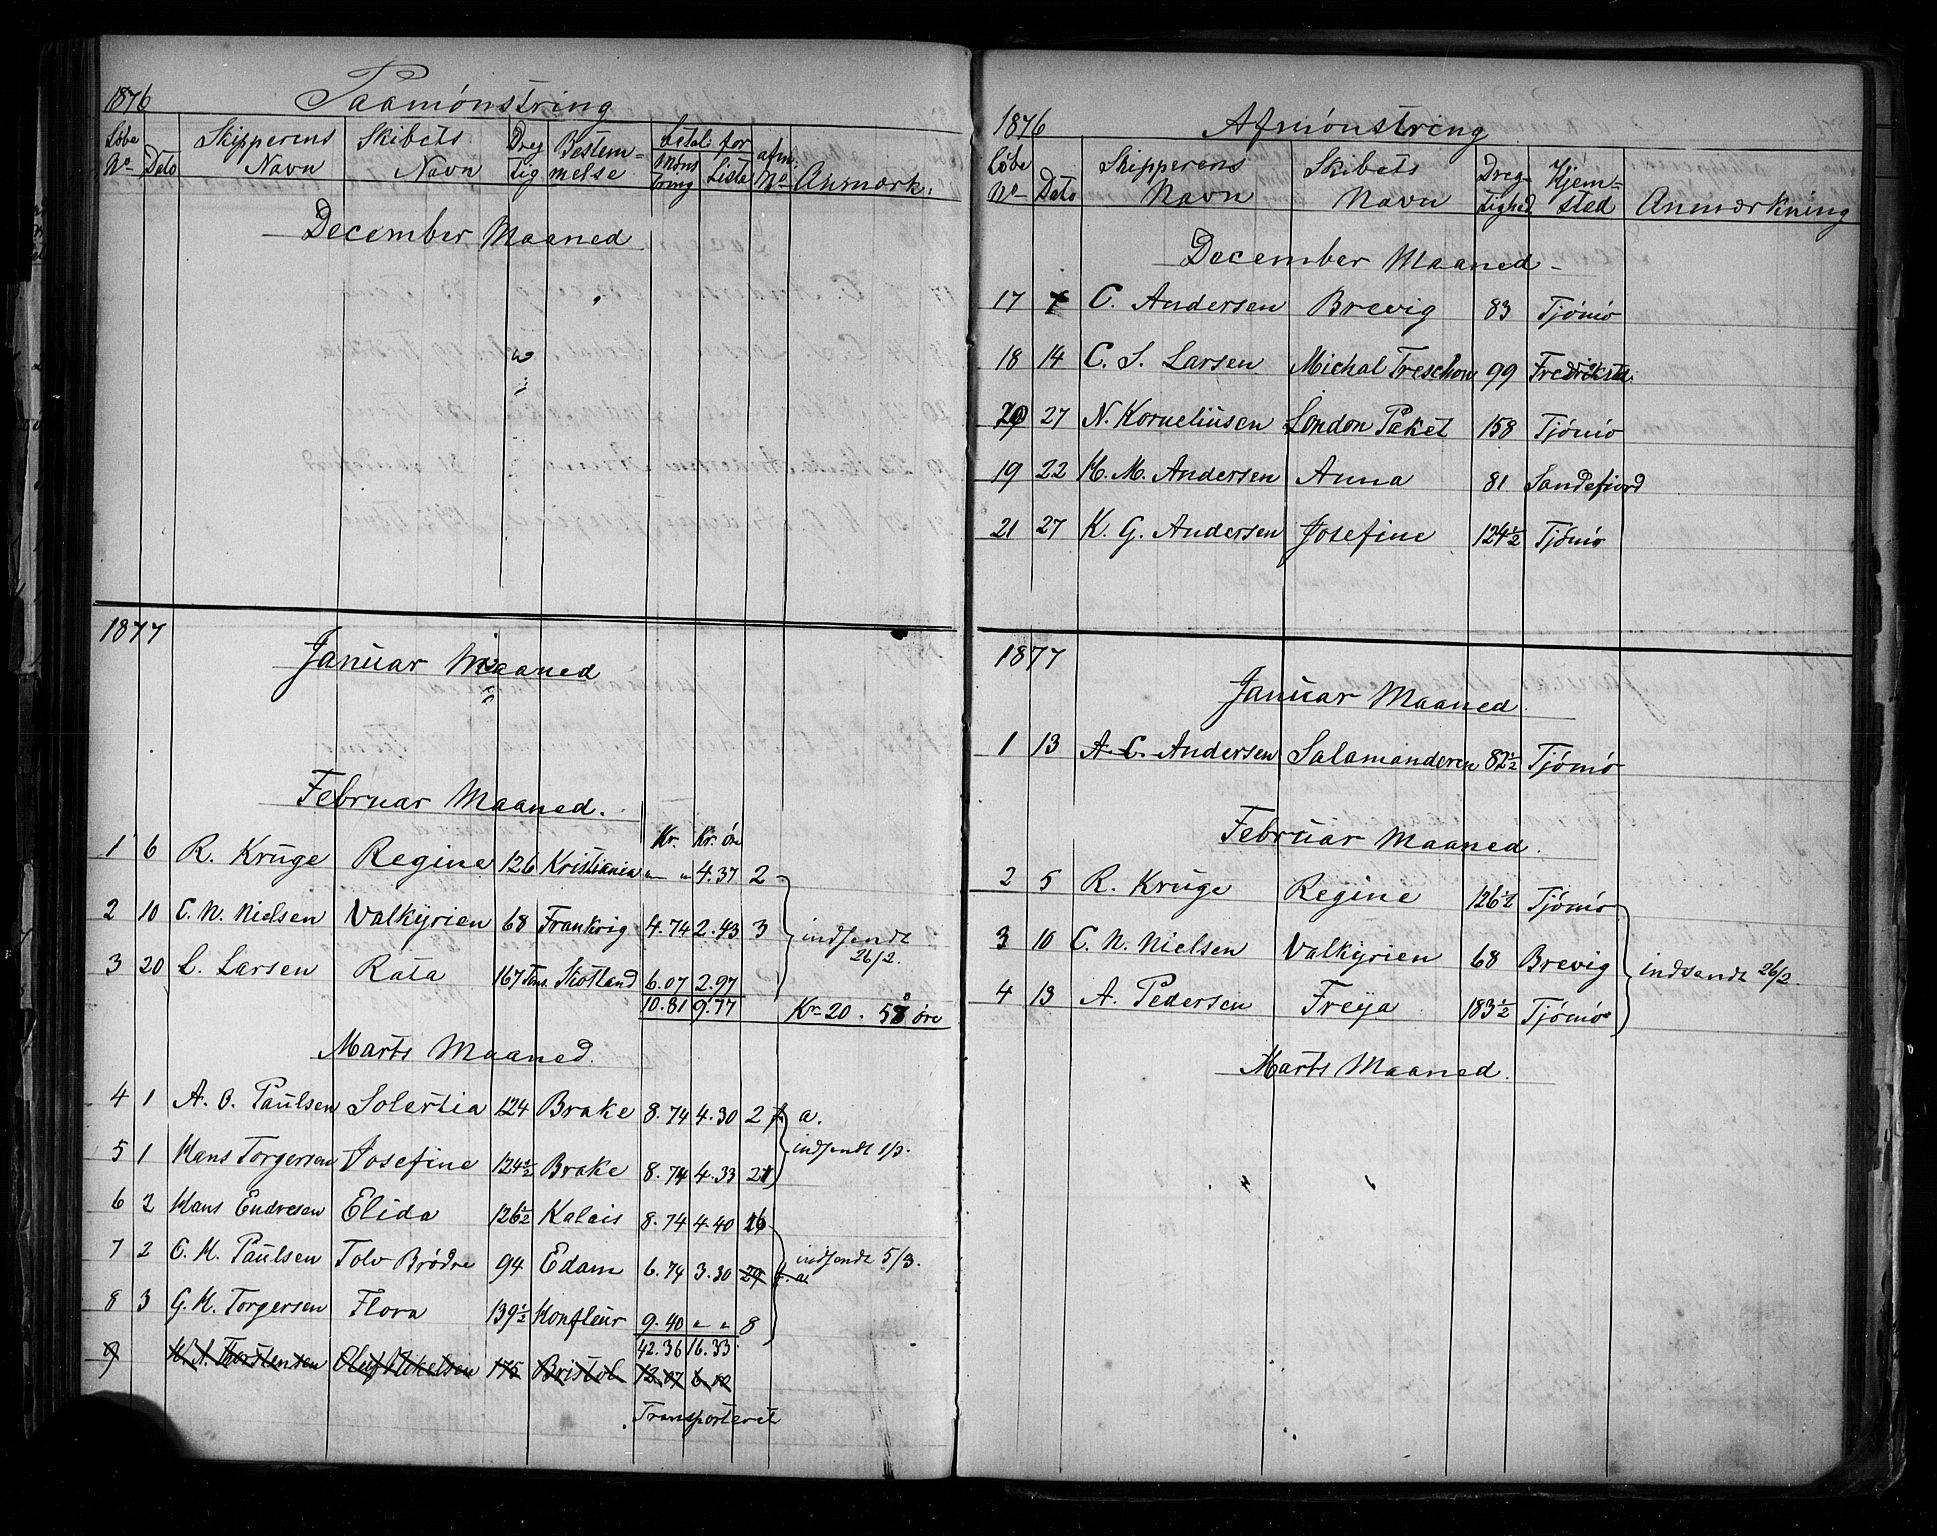 1876 Paamönstring
Löbe No Dato Skipperens Navn Skibets Navn Dreg tig Bestem= melse betal. for Mönst ring Liste afm. No Anmærk:
December Maaned
1877
Januar Maaned
Februar Maaned.
Kr. Kr. öre
1 6 R. Kruge Regine 126 Kristiania " " 4.37 2
2 10 C. N. Nielsen Valkyrien 68 Frankrig 4.74 2.43 3
indsendt 26/2.
3 20 L. Larsen Rata 167 Tons Skotland 6.07 2.97
10.81 9.77 Kr 20. 58 öre
Marts Maaned.
4 1 A. O. Paulsen Solertia 124 Brake 8.74 4.30 2 f. a.
indsendt 1/3.
5 1 Hans Torgersen Josefine 124½ Brake 8.74 4.33 21
6 2 Hans Endresen Elida 126½ Kalais 8.74 4.40 16
7 2 C. H. Paulsen Tolv Brödre 94 Edam 6.74 3.30 29 f. a.
indsendt 5/3.
8 3 G. H. Torgersen Flora 139½ Honfleur 9.40 " " 8
42.36 16.33
9 H. A. Thorstensen Oluf Mikelsen 175 Bristol 12.07 6.12
Transporteret
1876 Afmönstring
Löbe No Dato Skipperens Navn Skibets Navn Dreg= tighed Hjem= sted Anmærkning
December Maaned
17 7 C. Andersen Brevig 83 Tjömö
18 14 C. S. Larsen Michal Treschow 99 Fredrikstd.
20 27 N. Korneliusen London Paket 158 Tjömö
19 22 H. M. Andersen Anna 81 Sandefiord
21 27 K. G. Andersen Josefine 124½ Tjömö
1877
Januar Maaned.
1 13 A. C. Andersen Salamanderen 82½ Tjömö
Februar Maaned.
2 5 R. Kruge Regine 126½ Tjömö
3 10 C. N. Nielsen Valkyrien 68 Brevig indsendt 26/2.
4 13 A. Pedersen Freya 183½ Tjömö
Marts Maaned.